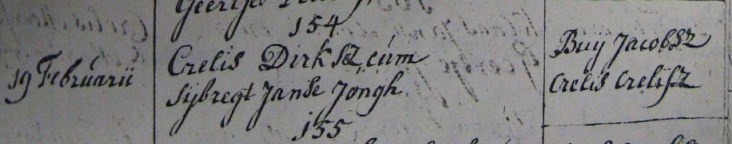 154
19 Februarii
Crelis Dirksz cum
Sijbregt Janse Jongh
Buij Jacobsz
Crelis Crelisz
155